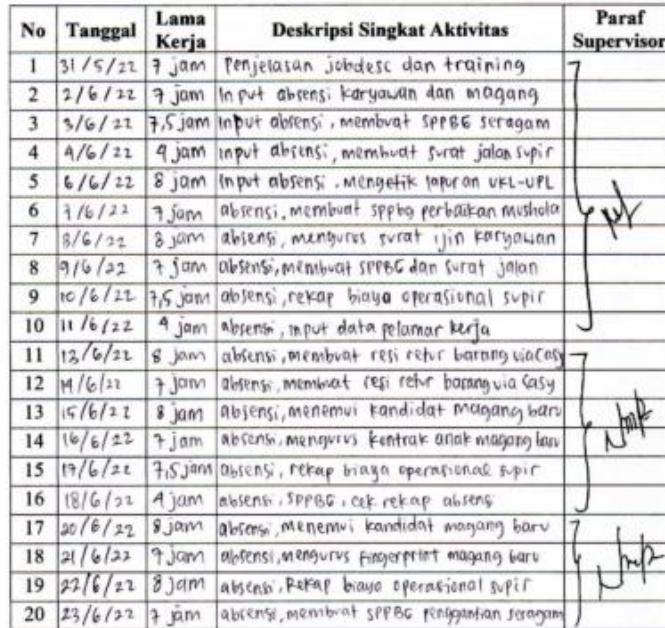 No Tanggal Lama Kerja Deskripsi Singkat Aktivitas Paraf Supervisor
1 31/5/22 7 jam Penjelasan jobdesc dan training
2 2/6/22 7 jam Input absensi karyawan dan magang
3 3/6/22 7,5 jam Input absensi, membuat SPPBG seragam
4 4/6/22 4 jam input absensi, membuat surat jalan supir
5 6/6/22 8 jam Input absensi, mengetik laporan UKL-UPL
6 7/6/22 7 jam absensi, membuat sppbg perbaikan mushola
7 8/6/22 8 jam absensi, mengurus surat ijin karyawan
8 9/6/22 7 jam absensi, membuat SPPBG dan surat jalan
9 10/6/22 7,5 jam absensi, rekap biaya operasional supir
10 11/6/22 4 jam absensi, input data pelamar kerja
11 13/6/22 8 jam absensi, membuat resi retur barang via Casy
12 14/6/22 7 jam absensi, membuat resi retur barang via Casy
13 15/6/22 8 jam absensi, menemui kandidat magang baru
14 16/6/22 7 jam absensi, mengurus kontrak anak magang baru
15 17/6/22 7,5 jam absensi, rekap biaya operasional supir
16 18/6/22 4 jam absensi, SPPBG, cek rekap absensi
17 20/6/22 8 jam absensi, menemui kandidat magang baru
18 21/6/22 7 jam absensi, mengurus fingerprint magang baru
19 22/6/22 8 jam absensi, Rekap biaya operasional supir
20 23/6/22 7 jam absensi, membuat SPPBG penggantian seragam